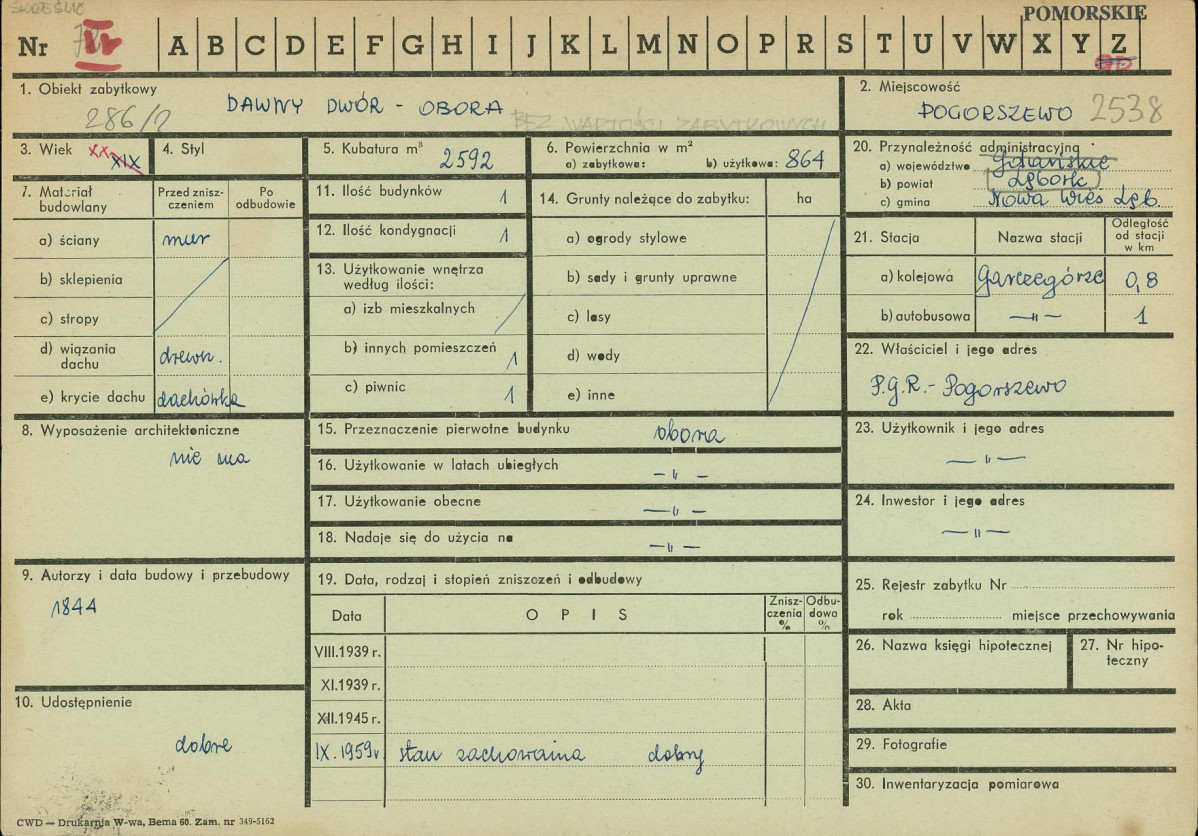 SKREŚLIĆ
POMORSKIE
Nr IV A B C D E F G H I J K L M N O P R S T U V W X Y Z
1. Obiekt zabytkowy
DAWNY DWÓR - OBORA
286/2
BEZ WARTOŚCI ZABYTKOWYCH
2. Miejscowość
POGORSZEWO 2538
3. Wiek XX XIX
4. Styl
5. Kubatura m³ 2592
6. Powierzchnia w m²
a) zabytkowa: b) użytkowa: 864
20. Przynależność administracyjną
a) województwo Gdańskie
b) powiat Lębork
c) gmina Nowa Wieś Lęb.
7. Materiał budowlany
Przed zniszczeniem
Po odbudowie
a) ściany mur
b) sklepienia
c) stropy
d) wiązania dachu drewn.
e) krycie dachu dachówka
11. Ilość budynków 1
12. Ilość kondygnacji 1
13. Użytkowanie wnętrza według ilości:
a) izb mieszkalnych
b) innych pomieszczeń 1
c) piwnic 1
14. Grunty należące do zabytku: ha
a) ogrody stylowe
b) sady i grunty uprawne
c) lasy
d) wody
e) inne
21. Stacja Nazwa stacji Odległość od stacji w km
a) kolejowa Garczegórze 0,8
b) autobusowa —"— 1
22. Właściciel i jego adres
P.G.R.- Pogorszewo
8. Wyposażenie architektoniczne
nie ma
15. Przeznaczenie pierwotne budynku obora
16. Użytkowanie w latach ubiegłych —"—
17. Użytkowanie obecne —"—
18. Nadaje się do użycia na —"—
23. Użytkownik i jego adres
—"—
24. Inwestor i jego adres
—"—
9. Autorzy i data budowy i przebudowy
1844
19. Data, rodzaj i stopień zniszczeń i odbudowy
Data OPIS Zniszczenia % Odbudowa %
VIII.1939 r.
XI.1939 r.
XII.1945 r.
IX.1959r stan zachowania dobry
25. Rejestr zabytku Nr
rok miejsce przechowywania
26. Nazwa księgi hipotecznej
27. Nr hipoteczny
10. Udostępnienie
dobre
28. Akta
29. Fotografie
30. Inwentaryzacja pomiarowa
CWD — Drukarnia W-wa, Bema 60. Zam. nr 349-5162